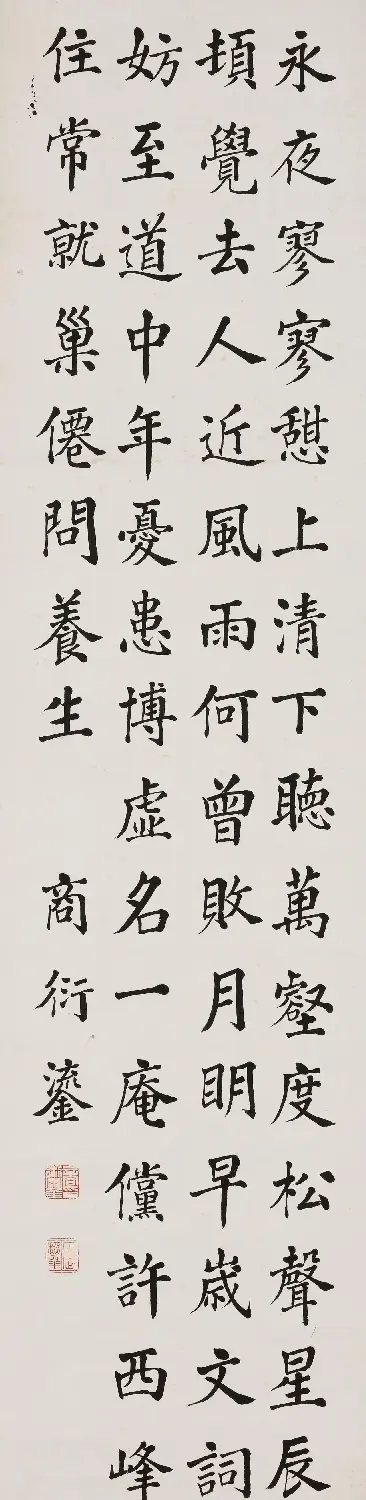 永夜寥寥憇上清下聽萬壑度松聲星辰
頂覺去人近風雨何曾敗月明早歲文詞
妨至道中年憂患博虛名一庵儻許西峰
住常就巢僊問養生
商衍鎏